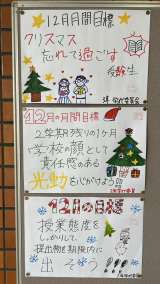 12月月間目標
クリスマス
忘れて過ごす
受験生
12月の月間目標
2学期残りの1ヶ月
学校の顔として
責任感のある
行動を心がけよう!!!
12月の目標
授業態度を
しっかりして、
提出物を期限内に
出そう